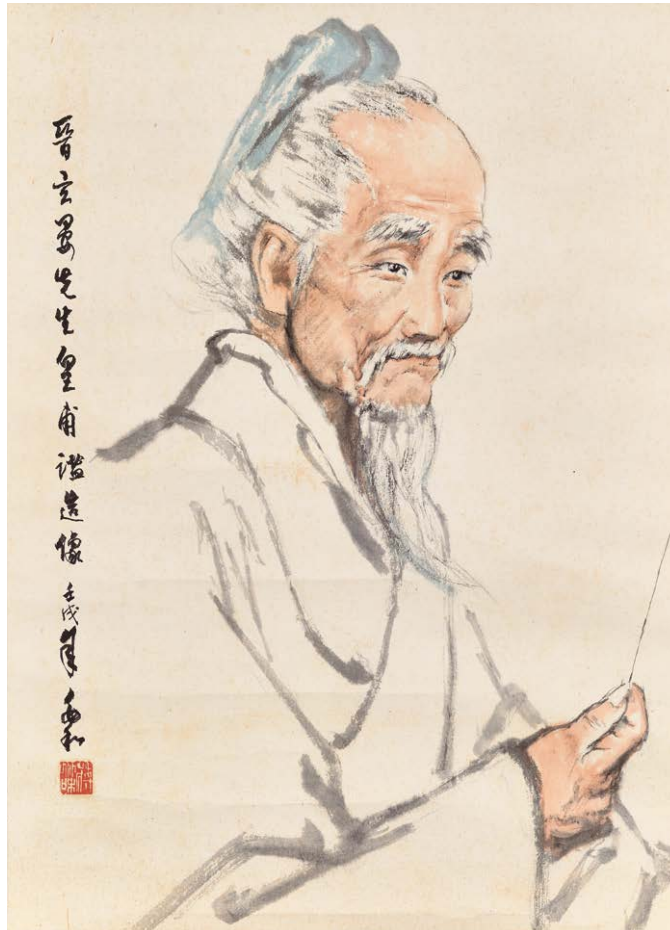 晉玄晏先生皇甫謐造像 壬戌年 兆和